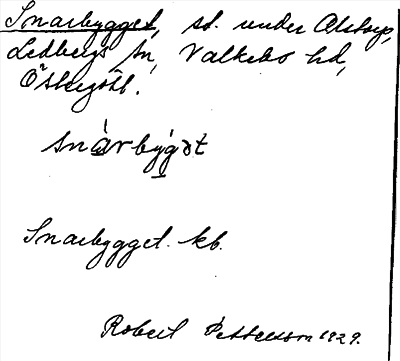 Snarbygget, st. under Alstorp,
Ledbergs sn, Valkebo hd,
Östergötl.
snàrbýgət
Snarbygget. kb.
Robert Pettersson 1929.